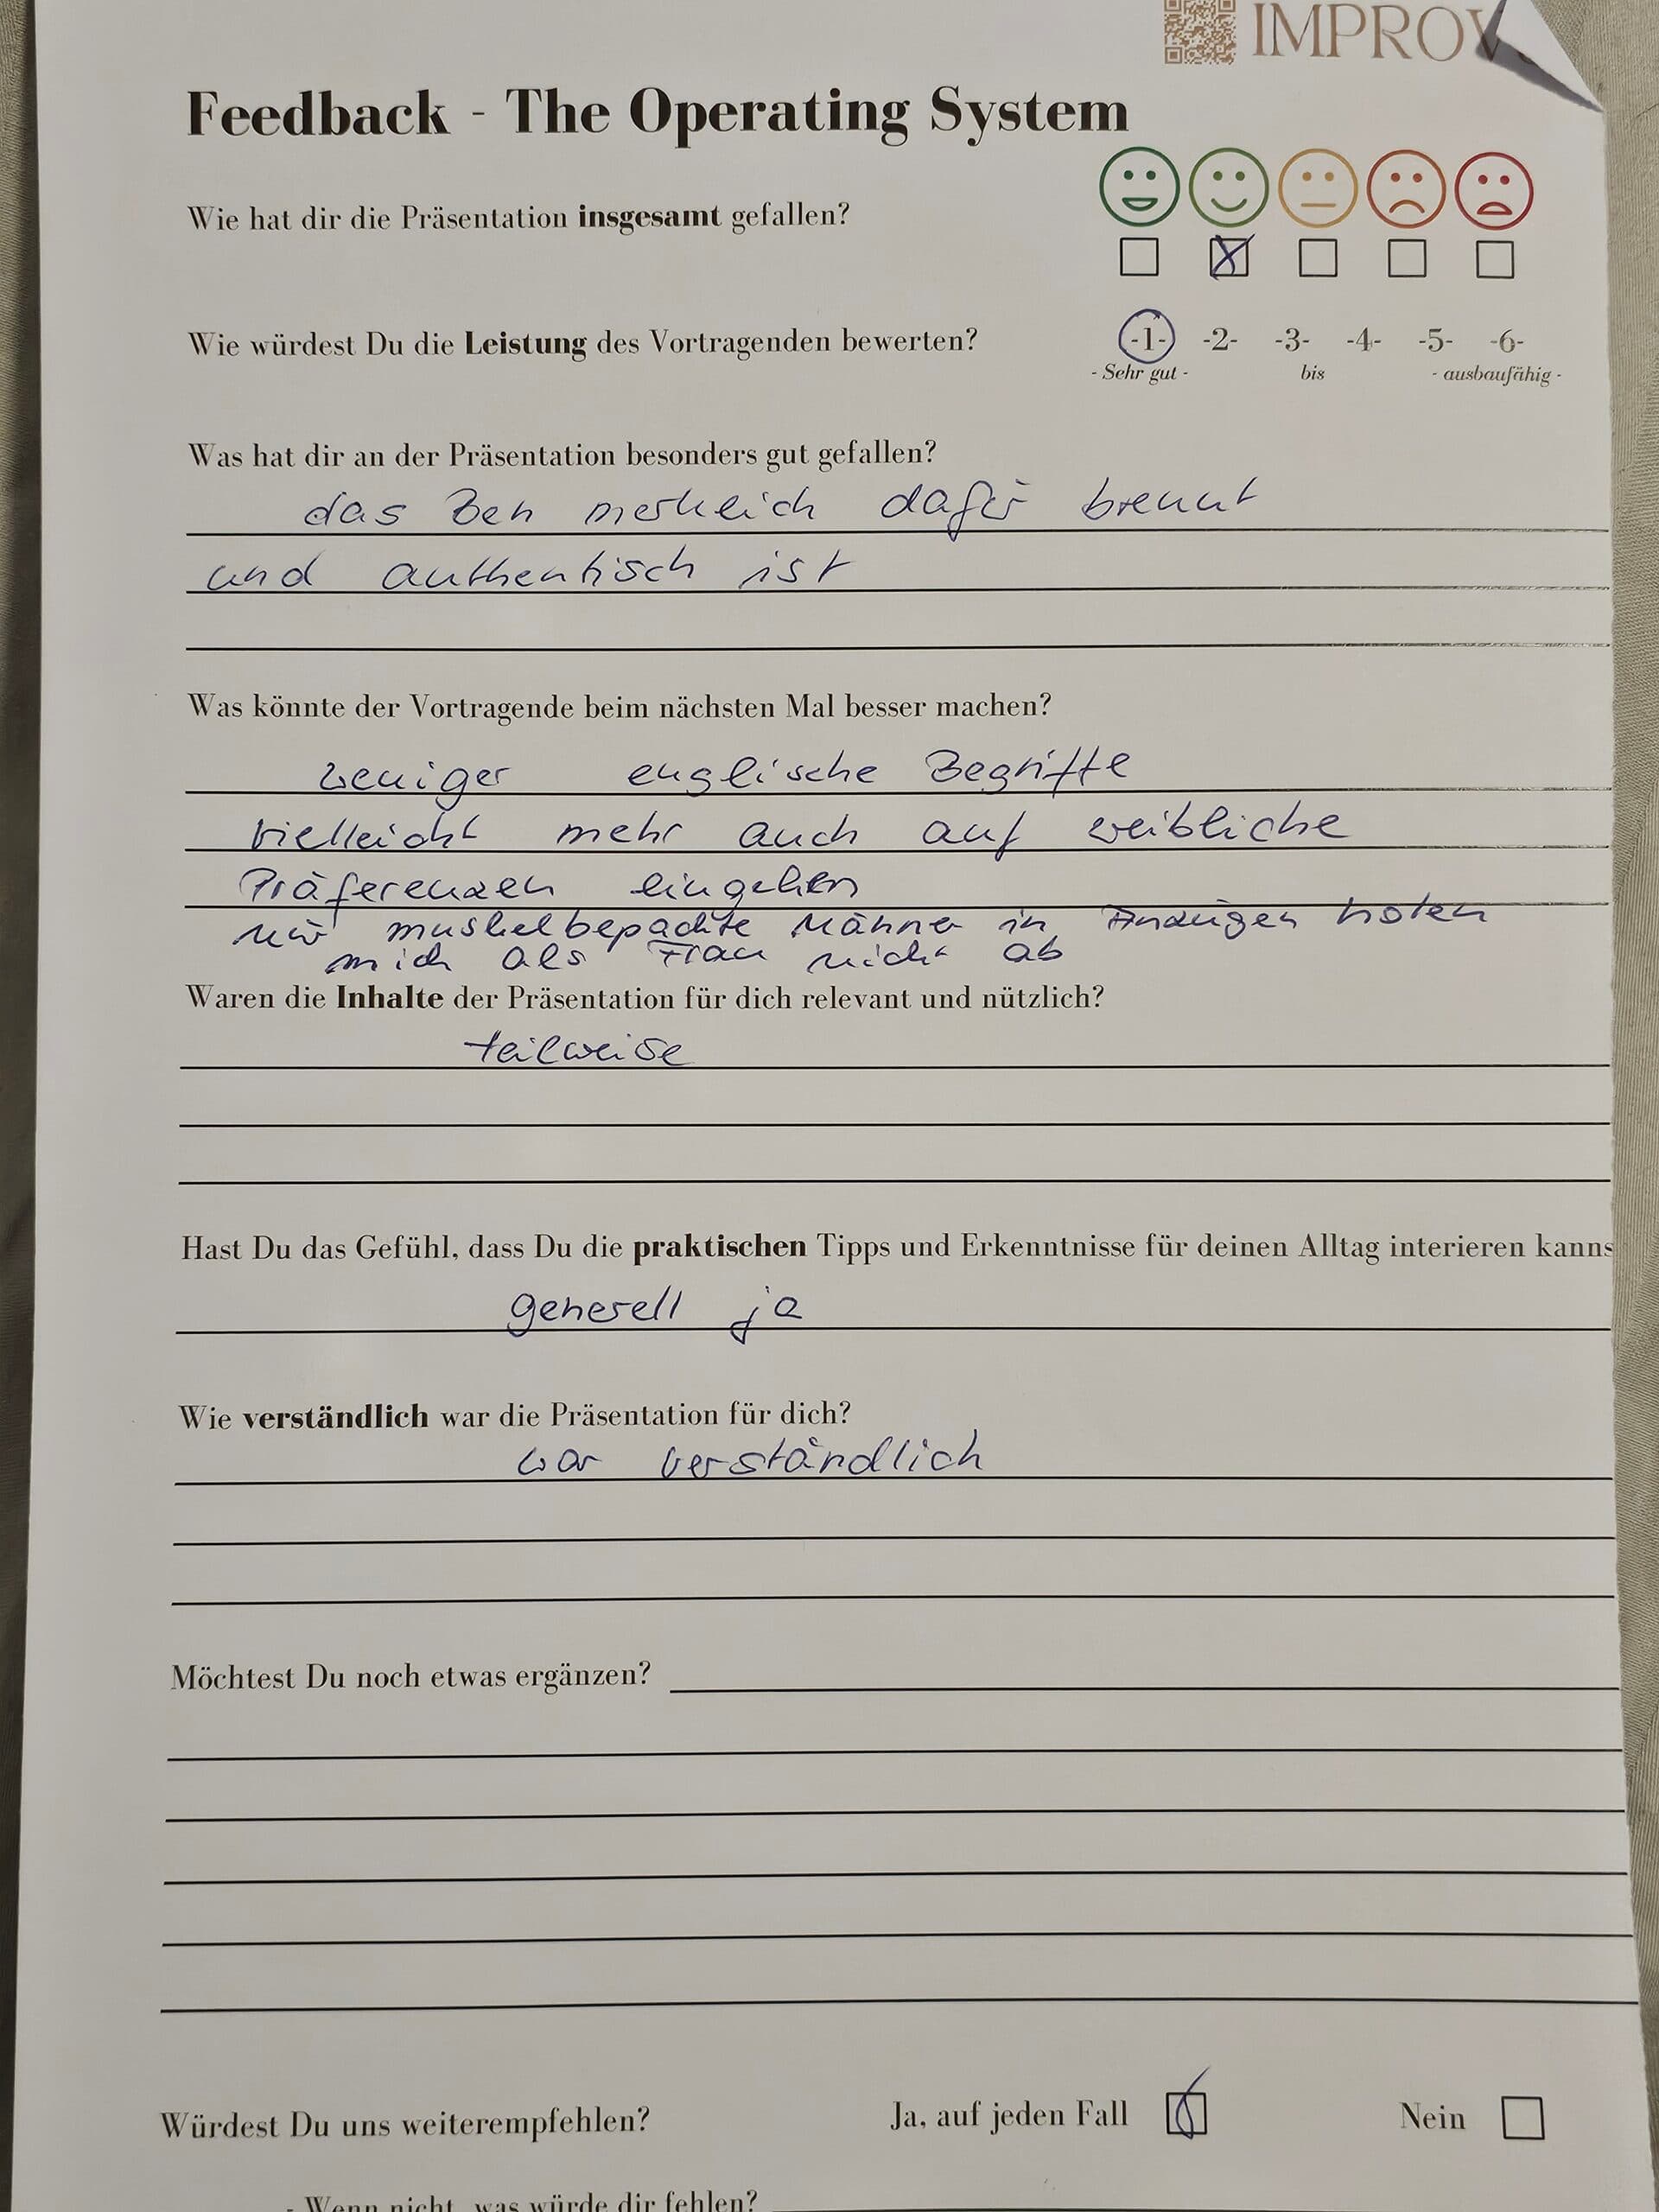 IMPROV
Feedback - The Operating System
Wie hat dir die Präsentation insgesamt gefallen?
Wie würdest Du die Leistung des Vortragenden bewerten? -1- -2- -3- -4- -5- -6-
- Sehr gut - bis - ausbaufähig -
Was hat dir an der Präsentation besonders gut gefallen?
das Ben merklich dafür brennt
und authentisch ist
Was könnte der Vortragende beim nächsten Mal besser machen?
weniger englische Begriffe
vielleicht mehr auch auf weibliche
Präferenzen eingehen
nur muskelbepackte Männer in Anzügen holen
mich als Frau nicht ab
Waren die Inhalte der Präsentation für dich relevant und nützlich?
teilweise
Hast Du das Gefühl, dass Du die praktischen Tipps und Erkenntnisse für deinen Alltag interieren kanns
generell ja
Wie verständlich war die Präsentation für dich?
war verständlich
Möchtest Du noch etwas ergänzen?
Würdest Du uns weiterempfehlen? Ja, auf jeden Fall Nein
- Wenn nicht, was würde dir fehlen?